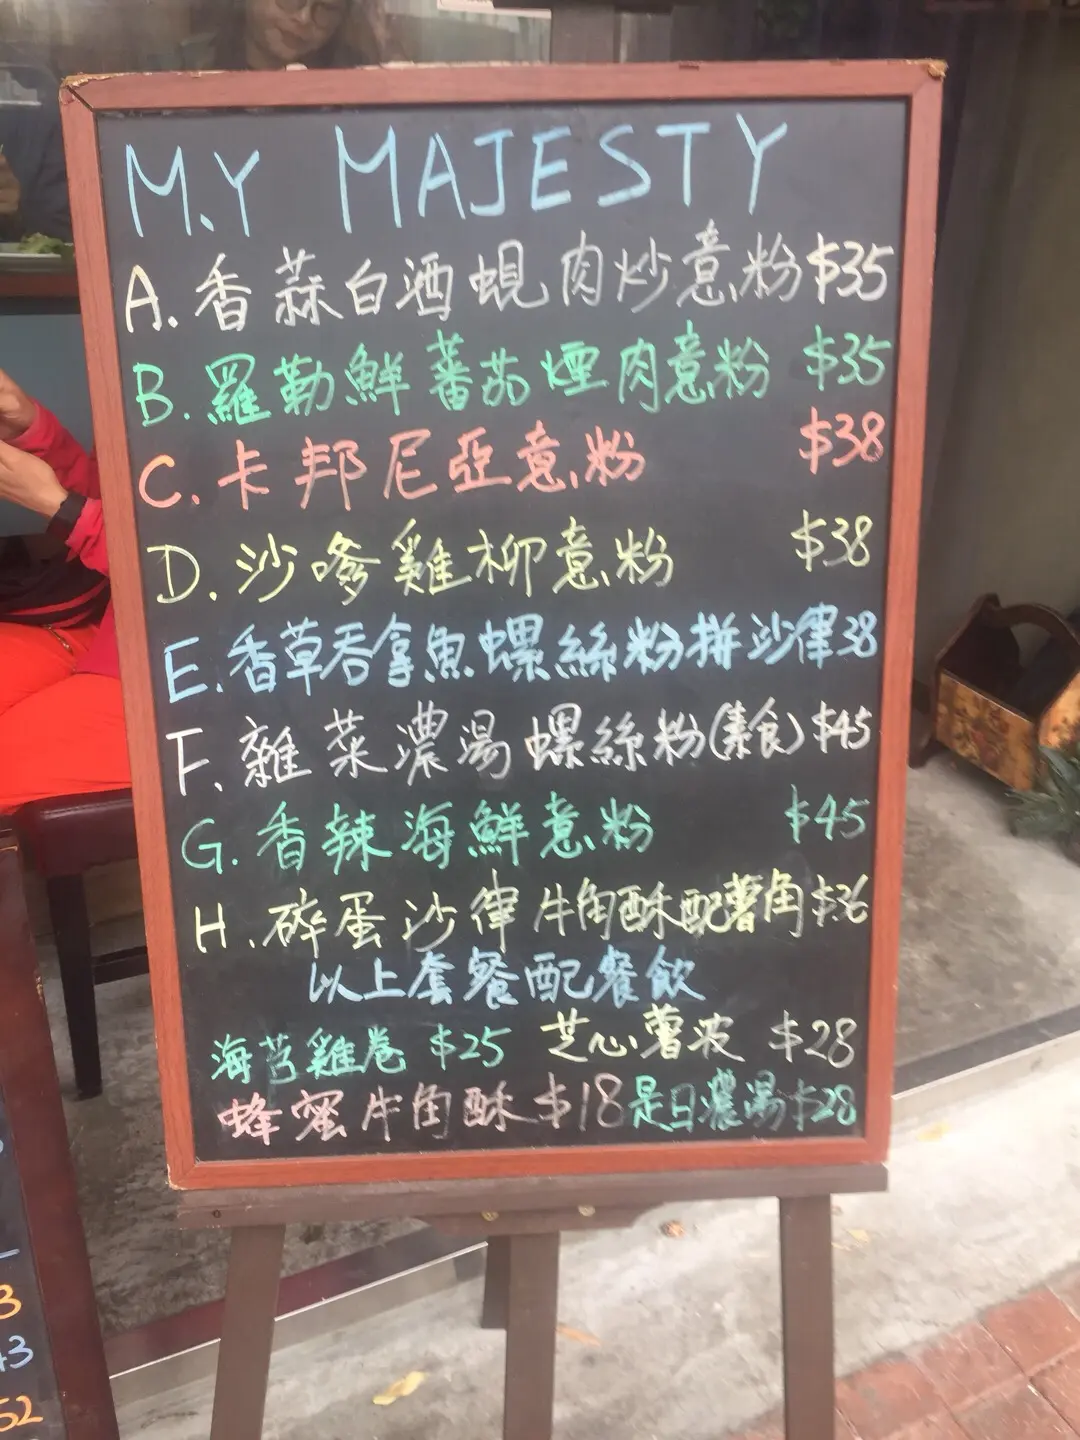 M.Y MAJESTY
A. 香蒜白酒蜆肉炒意粉 $35
B. 羅勒鮮蕃茄煙肉意粉 $35
C. 卡邦尼亞意粉 $38
D. 沙嗲雞柳意粉 $38
E. 香草吞拿魚螺絲粉拼沙律 38
F. 雜菜濃湯螺絲粉(素食) $45
G. 香辣海鮮意粉 $45
H. 碎蛋沙律牛角酥配薯角 $36
以上套餐配餐飲
海苔雞卷 $25 芝心薯波 $28
蜂蜜牛角酥 $18 是日濃湯 $28
3
43
52